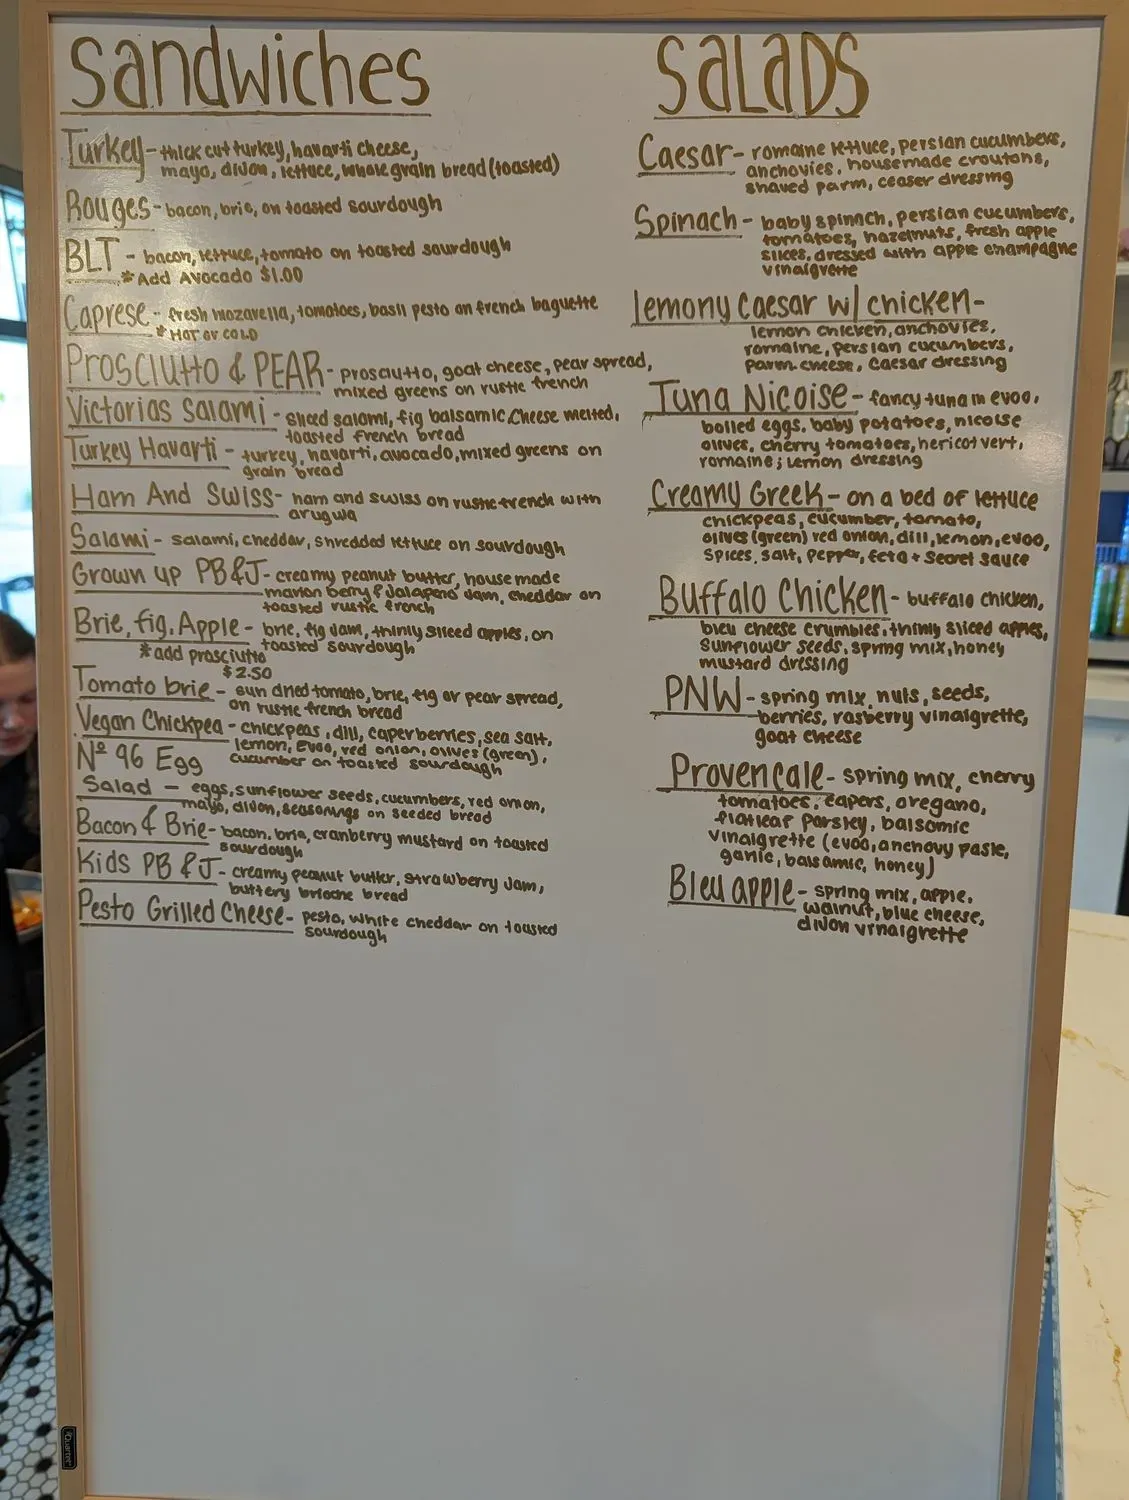 Sandwiches
Turkey - thick cut turkey, havarti cheese,
mayo, dijon, lettuce, whole grain bread (toasted)
Rouges - bacon, brie, on toasted sourdough
BLT - bacon, lettuce, tomato on toasted sourdough
*Add Avocado $1.00
Caprese - fresh mozarella, tomatoes, basil pesto on french baguette
*HOT or COLD
Prosciutto & PEAR - prosciutto, goat cheese, pear spread,
mixed greens on rustic french
Victorias Salami - sliced salami, fig balsamic. Cheese melted,
toasted french bread
Turkey Havarti - turkey, havarti, avocado, mixed greens on
grain bread
Ham And Swiss - ham and swiss on rustic french with
arugula
Salami - salami, cheddar, shredded lettuce on sourdough
Grown up PB&J - creamy peanut butter, house made
marion berry & Jalapeno Jam, cheddar on
toasted rustic french
Brie, fig, Apple - brie, fig jam, thinly sliced apples, on
toasted sourdough
*add prosciutto
$2.50
Tomato brie - sun dried tomato, brie, fig or pear spread,
on rustic french bread
Vegan Chickpea - chickpeas, dill, caperberries, sea salt,
lemon, Evoo, red onion, olives (green),
cucumber on toasted sourdough
Nº 96 Egg
Salad - eggs, sunflower seeds, cucumbers, red onion,
mayo, dijon, seasonings on seeded bread
Bacon & Brie - bacon, brie, cranberry mustard on toasted
sourdough
Kids PB & J - creamy peanut butter, strawberry Jam,
buttery brioche bread
Pesto Grilled Cheese - pesto, white cheddar on toasted
sourdough
SALADS
Caesar - romaine lettuce, persian cucumbers,
anchovies, housemade croutons,
shaved parm, ceaser dressing
Spinach - baby spinach, persian cucumbers,
tomatoes, hazelnuts, fresh apple
slices, dressed with apple champagne
vinaigrette
Lemony Caesar w/ chicken -
lemon chicken, anchovies,
romaine, persian cucumbers,
parm cheese, caesar dressing
Tuna Nicoise - fancy tuna in evoo,
boiled eggs, baby potatoes, nicoise
olives, cherry tomatoes, hericot vert,
romaine; lemon dressing
Creamy Greek - on a bed of lettuce
chickpeas, cucumber, tomato,
olives (green) red onion, dill, lemon, evoo,
spices, salt, pepper, feta + secret sauce
Buffalo Chicken - buffalo chicken,
bleu cheese crumbles, thinly sliced apples,
sunflower seeds, spring mix, honey
mustard dressing
PNW - spring mix, nuts, seeds,
berries, rasberry vinaigrette,
goat cheese
Provencale - spring mix, cherry
tomatoes, capers, oregano,
flatleaf parsley, balsamic
vinaigrette (evoo, anchovy paste,
garlic, balsamic, honey)
Bleu apple - spring mix, apple,
walnut, blue cheese,
dijon vinaigrette
Quartet